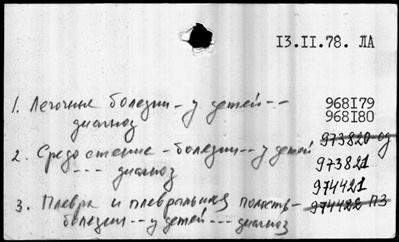 13.II.78. ЛА
1. Легочные болезни - у детей --
диагноз
968179
968180
973820-сд
2. Средостение - болезни -- у детей
--- диагноз
973821
974421
3. Плевра и плевральная полость -
болезни -- у детей --- диагноз
974422 ПЗ